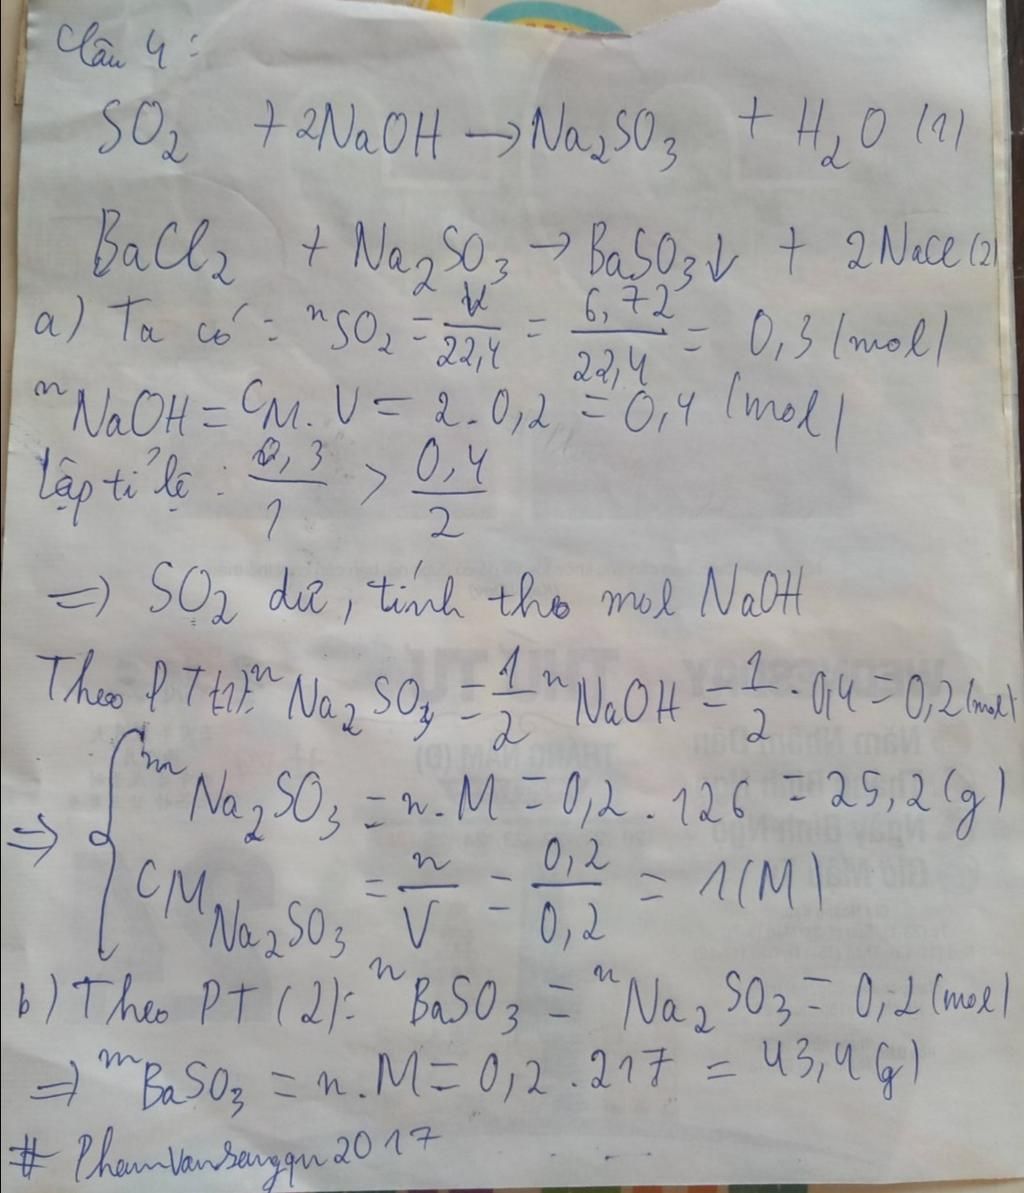 Câu 4:
SO2 + 2NaOH → Na2SO3 + H2O (1)
BaCl2 + Na2SO3 → BaSO3↓ + 2NaCl (2)
a) Ta có: nSO2 = V/22,4 = 6,72/22,4 = 0,3 (mol)
nNaOH = CM.V = 2.0,2 = 0,4 (mol)
Lập tỉ lệ: 0,3/1 > 0,4/2
=> SO2 dư, tính theo mol NaOH
Theo PT(1): nNa2SO3 = 1/2 nNaOH = 1/2 . 0,4 = 0,2 (mol)
=> { mNa2SO3 = n.M = 0,2 . 126 = 25,2 (g)
CM Na2SO3 = n/V = 0,2/0,2 = 1 (M)
b) Theo PT (2): nBaSO3 = nNa2SO3 = 0,2 (mol)
=> mBaSO3 = n.M = 0,2 . 217 = 43,4 (g)
# Phamvansangqn2017